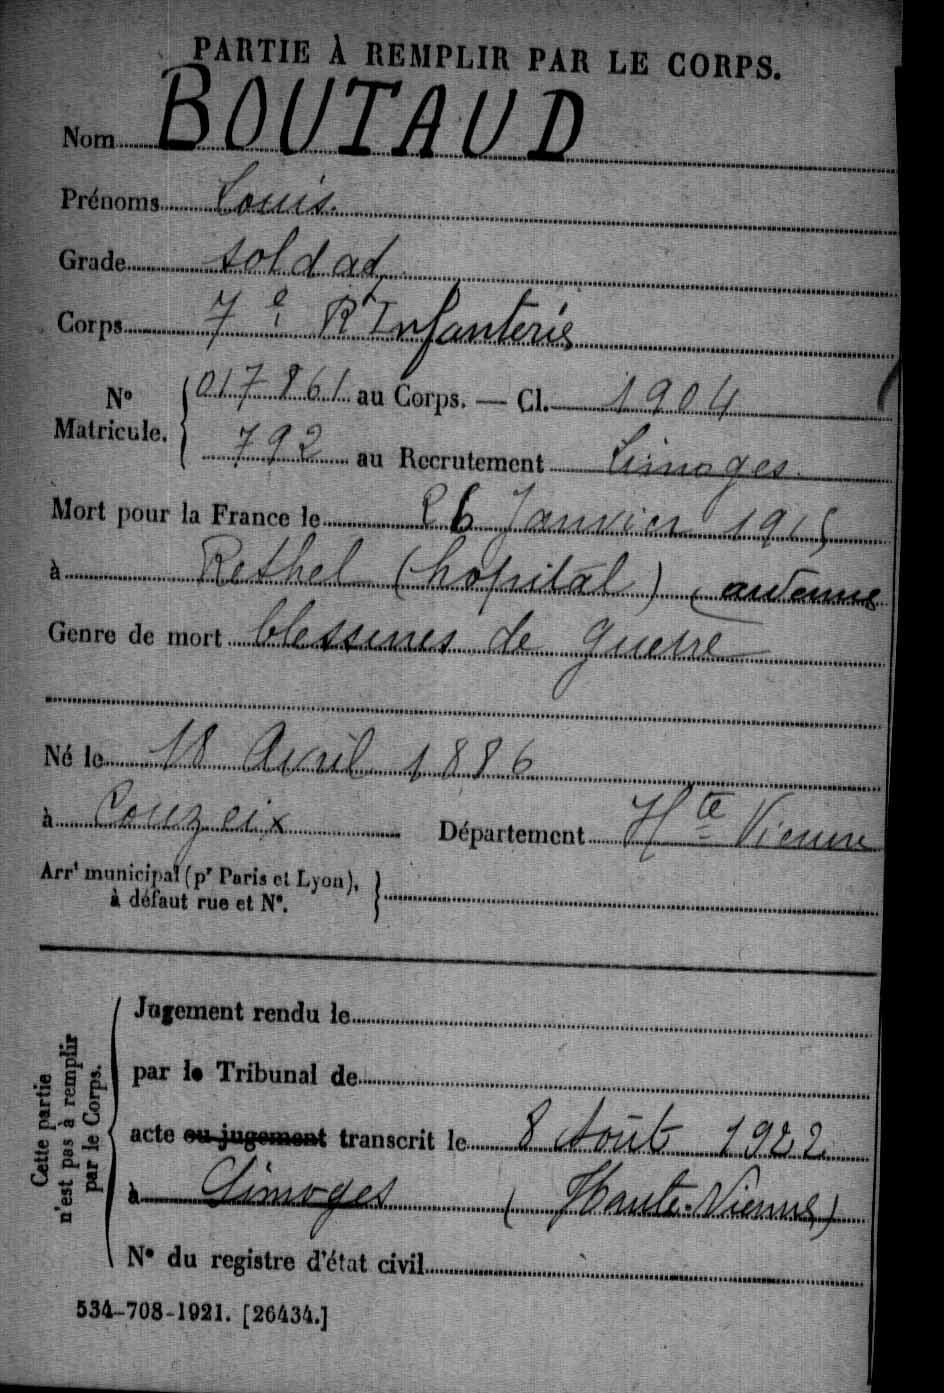 PARTIE À REMPLIR PAR LE CORPS.
Nom BOUTAUD
Prénoms Louis.
Grade soldat
Corps 7e Rt Infanterie
No Matricule. 017861 au Corps. — Cl. 1904
792 au Recrutement Limoges.
Mort pour la France le 26 Janvier 1915
à Rethel (hopital) (ardennes
Genre de mort blessures de guerre
Né le 18 Avril 1886
à Couzeix Département Hte Vienne
Arrt municipal (pr Paris et Lyon),
à défaut rue et No.
Cette partie
n'est pas à remplir
par le Corps.
Jugement rendu le
par le Tribunal de
acte ou jugement transcrit le 8 Août 1922
à Limoges (Haute-Vienne)
No du registre d'état civil
534-708-1921. [26434.]